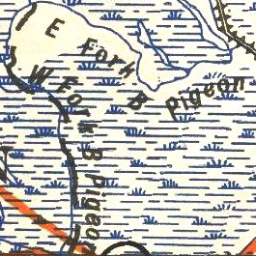 E Fork B Pigeon
W Fork B Pigeon